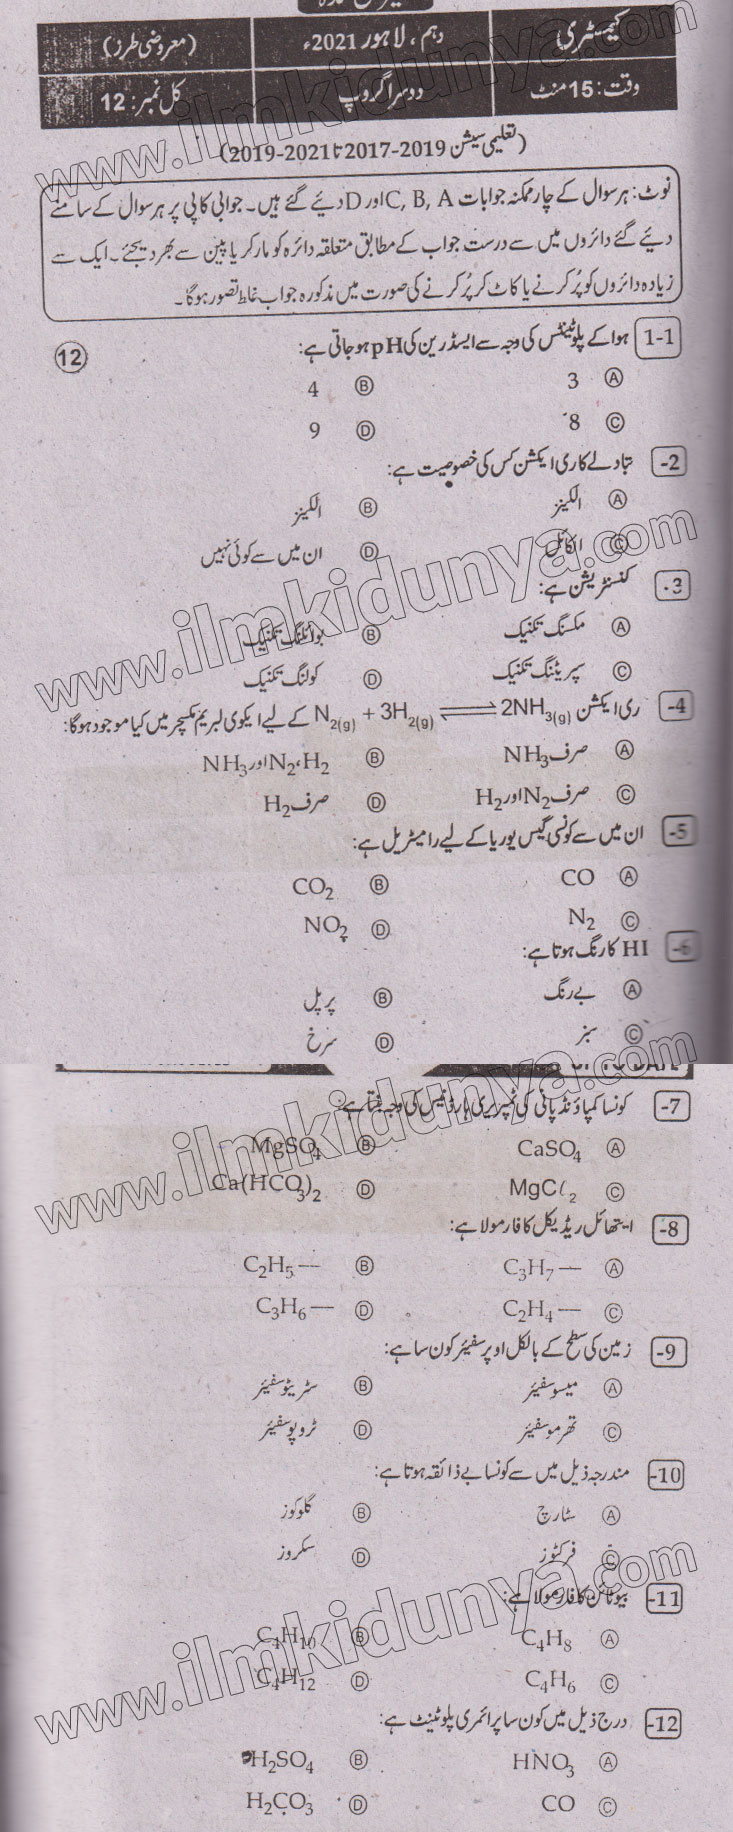 کیمسٹری
دہم، لاہور 2021ء
(معروضی طرز)
وقت: 15 منٹ
دوسرا گروپ
کل نمبر: 12
(تعلیمی سیشن 2019-2017 تا 2021-2019)
نوٹ: ہر سوال کے چار ممکنہ جوابات C, B, A اور D دیئے گئے ہیں۔ جوابی کاپی پر ہر سوال کے سامنے
دیئے گئے دائروں میں سے درست جواب کے مطابق متعلقہ دائرہ کو مارکر یا پین سے بھر دیجئے۔ ایک سے
زیادہ دائروں کو پُر کرنے یا کاٹ کر پُر کرنے کی صورت میں مذکورہ جواب غلط تصور ہوگا۔
1-1 ہوا کے پلوٹینٹس کی وجہ سے ایسڈ رین کی pH ہو جاتی ہے: (12)
Ⓐ 3 Ⓑ 4
Ⓒ 8 Ⓓ 9
-2 تبادلے کا ری ایکشن کس کی خصوصیت ہے:
Ⓐ الکینز Ⓑ الکینز
Ⓒ الکائل Ⓓ ان میں سے کوئی نہیں
.3 کنسنٹریشن ہے:
Ⓐ مکسنگ تکنیک Ⓑ بوائلنگ تکنیک
Ⓒ سپریٹنگ تکنیک Ⓓ کولنگ تکنیک
-4 ری ایکشن N2(g) + 3H2(g) ⇌ 2NH3(g) کے لیے ایکوی لبریم مکسچر میں کیا موجود ہوگا:
Ⓐ صرف NH3 Ⓑ N2، H2 اور NH3
Ⓒ صرف N2 اور H2 Ⓓ صرف H2
-5 ان میں سے کونسی گیس یوریا کے لیے رامیٹریل ہے:
Ⓐ CO Ⓑ CO2
Ⓒ N2 Ⓓ NO2
-6 HI کا رنگ ہوتا ہے:
Ⓐ بے رنگ Ⓑ پرپل
Ⓒ سبز Ⓓ سرخ
-7 کونسا کمپاؤنڈ پانی کی ٹمپریری ہارڈنیس کی وجہ بنتا ہے:
Ⓐ CaSO4 Ⓑ MgSO4
Ⓒ MgCl2 Ⓓ Ca(HCO3)2
-8 ایتھائل ریڈیکل کا فارمولا ہے:
Ⓐ C3H7— Ⓑ C2H5—
Ⓒ C2H4— Ⓓ C3H6—
-9 زمین کی سطح کے بالکل اوپر سفیئر کون سا ہے:
Ⓐ میسوسفیئر Ⓑ سٹریٹوسفیئر
Ⓒ تھرموسفیئر Ⓓ ٹروپوسفیئر
-10 مندرجہ ذیل میں سے کونسا بے ذائقہ ہوتا ہے:
Ⓐ سٹارچ Ⓑ گلوکوز
Ⓒ فرکٹوز Ⓓ سکروز
-11 بیوٹائن کا فارمولا ہے:
Ⓐ C4H8 Ⓑ C4H10
Ⓒ C4H6 Ⓓ C4H12
-12 درج ذیل میں کون سا پرائمری پلوٹینٹ ہے:
Ⓐ HNO3 Ⓑ H2SO4
Ⓒ CO Ⓓ H2CO3
www.ilmkidunya.com
www.ilmkidunya.com
www.ilmkidunya.com
www.ilmkidunya.com